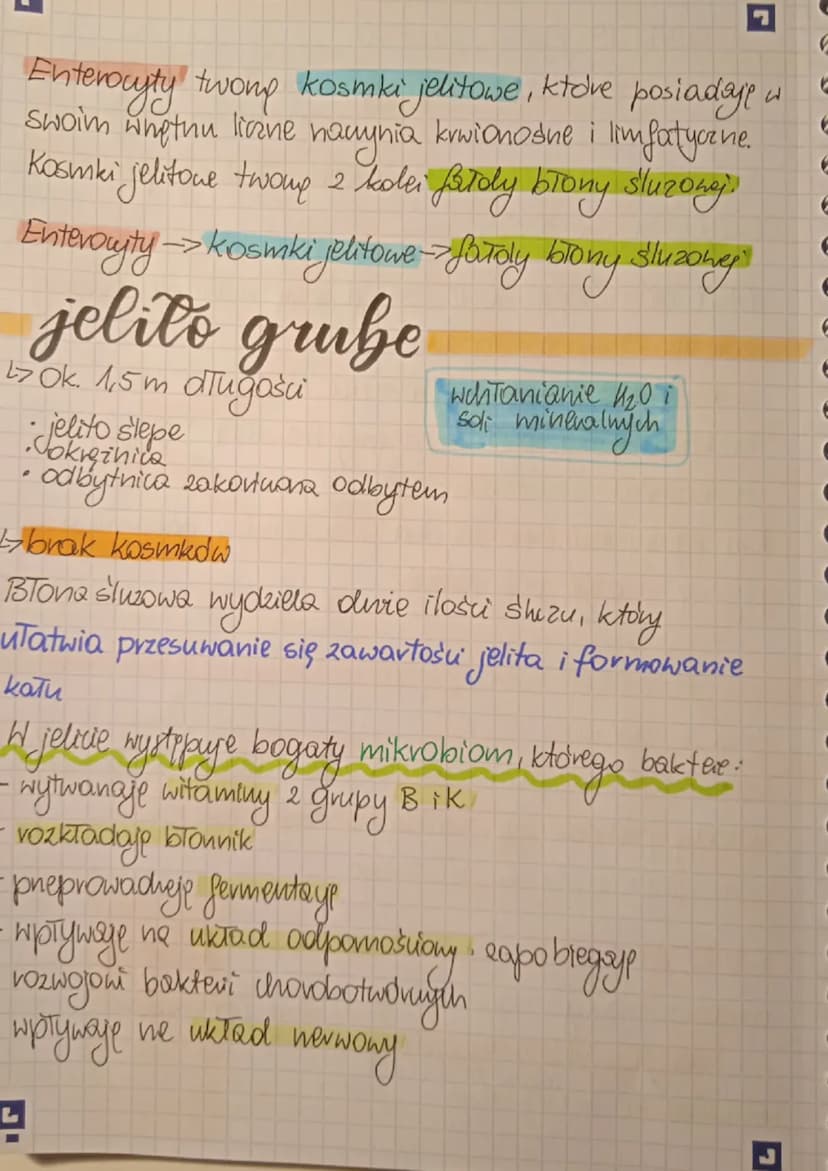 Enterocyty tworzą kosmki jelitowe, które posiadają w
swoim wnętrzu liczne naczynia krwionośne i limfatyczne.
Kosmki jelitowe tworzą z kolei fałdy błony śluzowej.
Enterocyty -> kosmki jelitowe -> fałdy błony śluzowej
jelito grube
↳ Ok. 1,5 m długości
wchłanianie H₂O i
soli mineralnych
• jelito ślepe
• okrężnica
• odbytnica zakończona odbytem
↳ brak kosmków
Błona śluzowa wydziela duże ilości śluzu, który
ułatwia przesuwanie się zawartości jelita i formowanie
kału
W jelicie występuje bogaty mikrobiom, którego bakterie:
- wytwarzają witaminy z grupy B i K
- rozkładają błonnik
- przeprowadzają fermentację
- wpływają na układ odpornościowy, zapobiegają
rozwojowi bakterii chorobotwórczych
wpływają na układ nerwowy